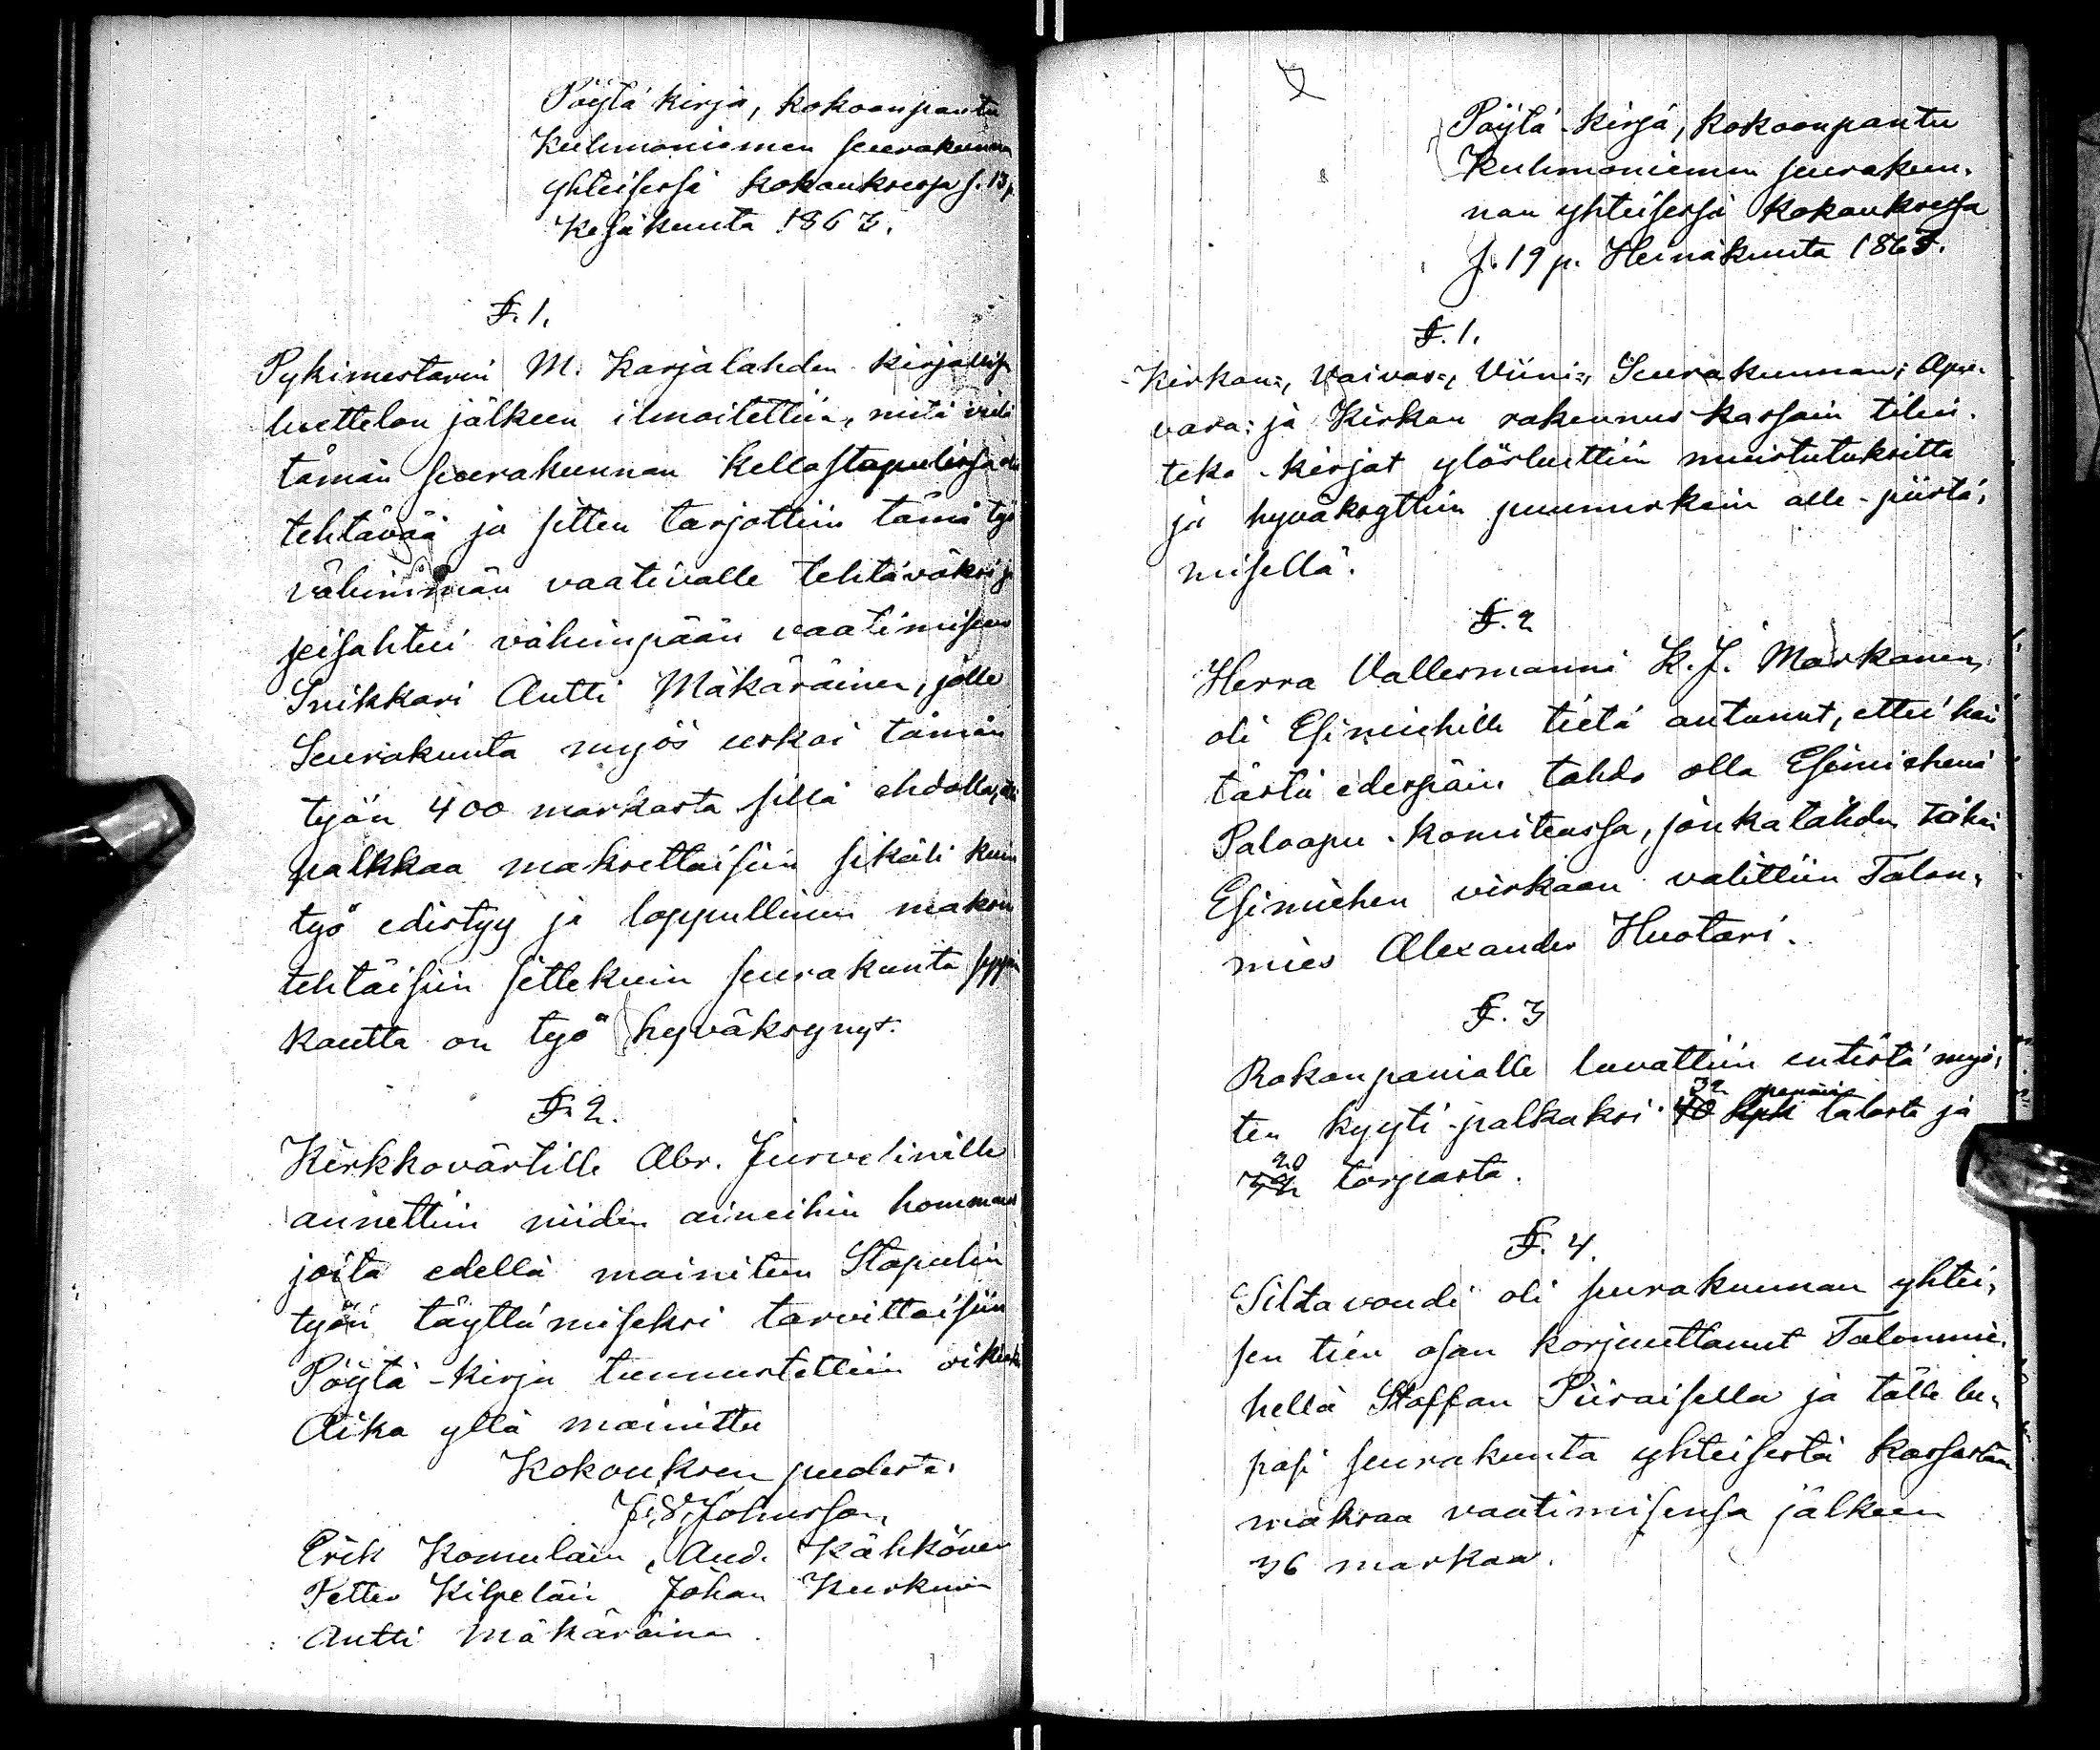 Pöytä kirja, kokoonpantu
Kuhmoniemen seurakunnan
yhteisessä kokouksessa s. 13 p.
Kesäkuuta 1863.
§. 1.
Pykimestarin M. Karjalahden kirjallisen
luettelon jälkeen ilmoitettiin, mitä vielä
tämän seurakunnan Kellostapulissa olisi
tehtävää ja sitten tarjottiin tämä työ
vähimmän vaativalle tehtäväksi ja
seisahtui vähinpään vaatimiseen
Snikkari Antti Mäkäräinen, jolle
Seurakunta myös uskoi tämän
työn 400 markasta sillä ehdolla, että
palkkaa maksettaisiin sikäli kuin
työ edistyy ja loppullinen maksu
tehtäisiin sittekuin seurakunta syyni
kautta on työ hyväksynyt.
§. 2.
Kirkkovärtille Abr. Jurvelinille
annettiin niiden aineihin hommaus
joita edellä mainitun Stapulin
työn täyttämiseksi tarvittaisiin
Pöytä-kirja tunnustettiin oikiaksi
Aika yllä mainittu
Kokouksen puolesta:
J. Johnsson,
Erik Komulain, And. Kähkönen
Petter Kilpeläin Johan Kurkinen
Antti Mäkäräinen.
Pöytä-kirja, kokoonpantu
Kuhmoniemen seurakun-
nan yhteisessä kokouksessa
s. 19 p. Heinäkuuta 1863.
§. 1.
Kirkon=, Vaivas=, Viini=, Seurakunnan; Apu-
vara: ja Kirkon rakennus-kassain tilin-
teko-kirjat ylösluettiin muistutuksitta
ja hyväksyttiin puumerkein alle-piirtä-
misellä.
§. 2
Herra Vallesmanni K. J. Markanen,
oli Esimiehille tietä antanut, ettei hän
tästä edespäin tahdo olla Esimiehenä
Paloapu-komiteassa, jonkatähden tähän
Esimiehen virkaan valittiin Talon-
mies Alexander Huotari.
§. 3
Rokonpanialle luvattiin entistä myö-
ten kyyti-palkaksi 40 kpk 32 penniä talosta ja
20 torpasta.
§. 4.
Siltavoudi oli seurakunnan yhtei-
sen tien osan korjuuttanut Talonmie-
hellä Staffan Piiraisella ja tälle lu-
pasi seurakunta yhteisestä kassastaan
maksaa vaatimisensa jälkeen
36 markaa.